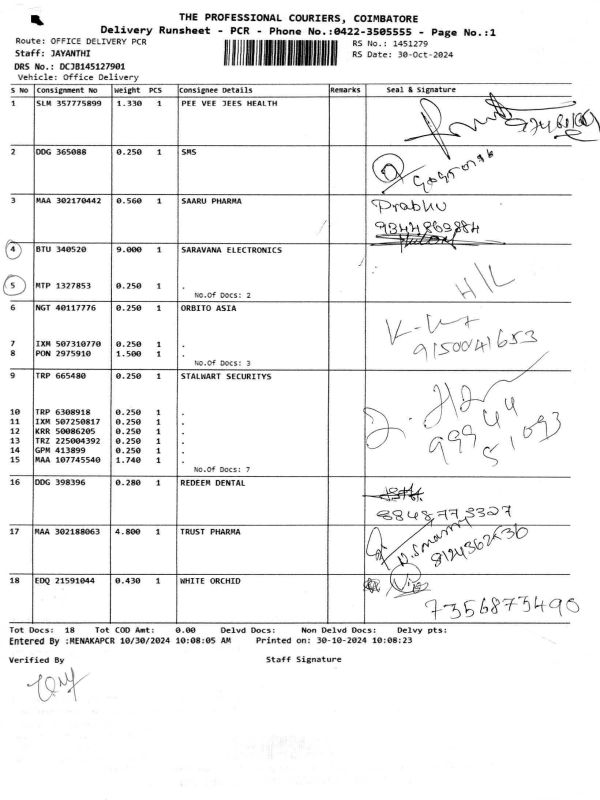 THE PROFESSIONAL COURIERS, COIMBATORE
Delivery Runsheet - PCR - Phone No.:0422-3505555 - Page No.:1
Route: OFFICE DELIVERY PCR RS No.: 1451279
Staff: JAYANTHI RS Date: 30-Oct-2024
DRS No.: DCJB145127901
Vehicle: Office Delivery
S No Consignment No Weight PCS Consignee Details Remarks Seal & Signature
1 SLM 357775899 1.330 1 PEE VEE JEES HEALTH
2 DDG 365088 0.250 1 SMS
3 MAA 302170442 0.560 1 SAARU PHARMA Prabhu
9344869884
4 BTU 340520 9.000 1 SARAVANA ELECTRONICS
5 MTP 1327853 0.250 1 . H/L
No.Of Docs: 2
6 NGT 40117776 0.250 1 ORBITO ASIA
7 IXM 507310770 0.250 1 . 9150041653
8 PON 2975910 1.500 1 .
No.Of Docs: 3
9 TRP 665480 0.250 1 STALWART SECURITYS
10 TRP 6308918 0.250 1 .
11 IXM 507250817 0.250 1 . 99944
12 KRR 50086205 0.250 1 . 51093
13 TRZ 225004392 0.250 1 .
14 GPM 413899 0.250 1 .
15 MAA 107745540 1.740 1 .
No.Of Docs: 7
16 DDG 398396 0.280 1 REDEEM DENTAL
8848773327
17 MAA 302188063 4.800 1 TRUST PHARMA
8124362636
18 EDQ 21591044 0.430 1 WHITE ORCHID
7356873490
Tot Docs: 18 Tot COD Amt: 0.00 Delvd Docs: Non Delvd Docs: Delvy pts:
Entered By :MENAKAPCR 10/30/2024 10:08:05 AM Printed on: 30-10-2024 10:08:23
Verified By Staff Signature